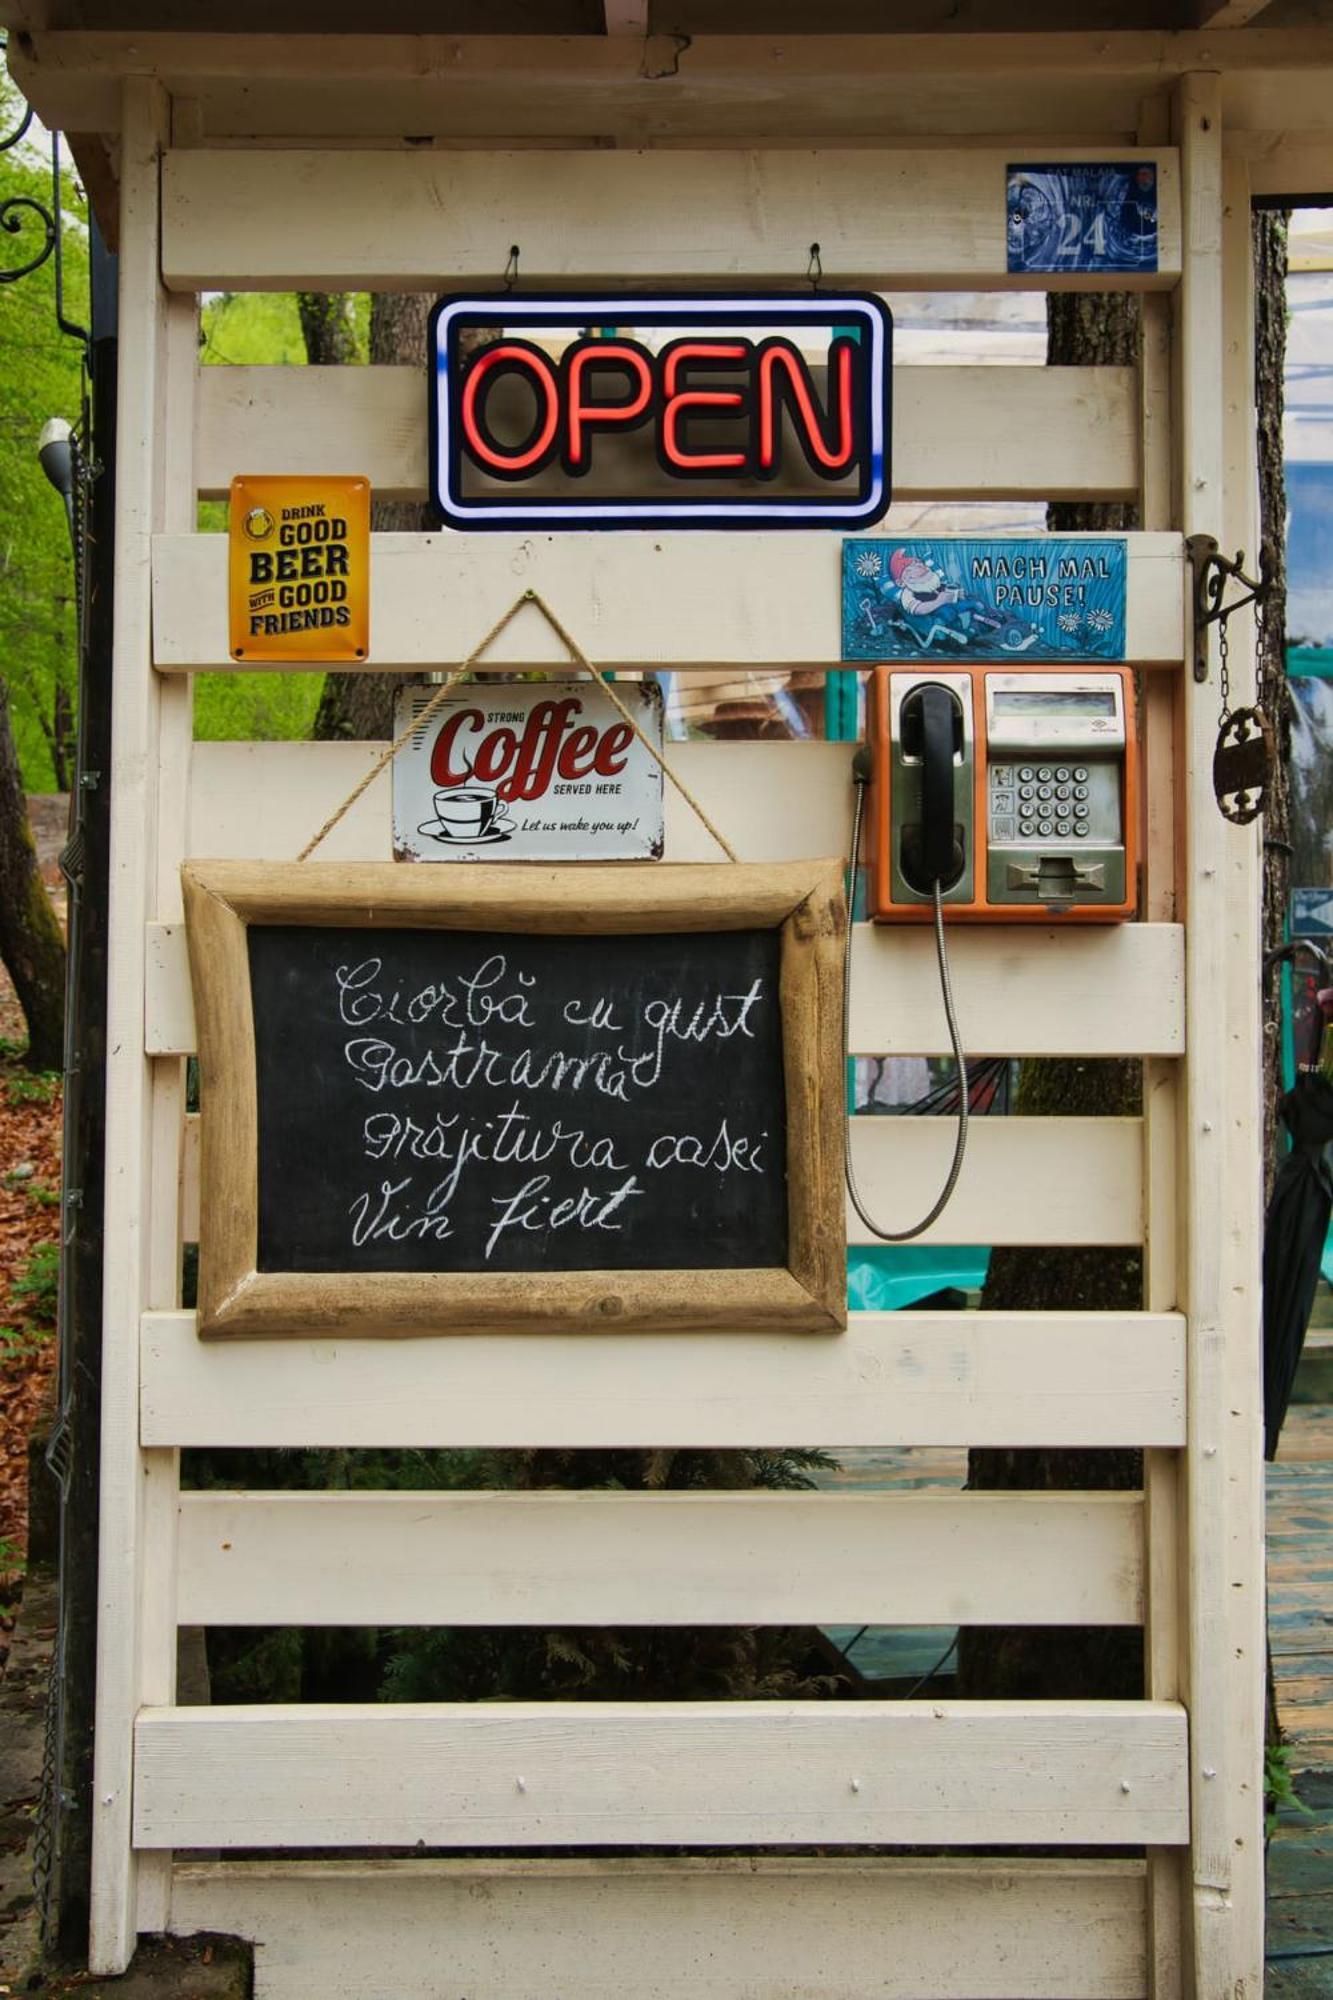 SAT MALAIA
NR.
24
OPEN
DRINK
GOOD
BEER
WITH GOOD
FRIENDS
MACH MAL
PAUSE!
STRONG
Coffee
SERVED HERE
Let us wake you up!
1 2 3
4 5 6
7 8 9
Ciorbă cu gust
Pastramă
Prăjitura casei
Vin fiert